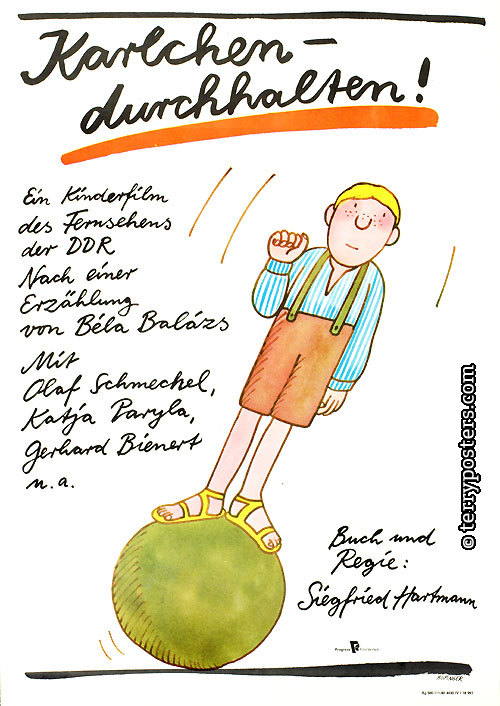 Karlchen –
durchhalten!
Ein Kinderfilm
des Fernsehens
der DDR
Nach einer
Erzählung
von Béla Balázs
Mit
Olaf Schmechel,
Katja Paryla,
Gerhard Bienert
u.a.
Buch und
Regie:
Siegfried Hartmann
© terryposters.com
Progress